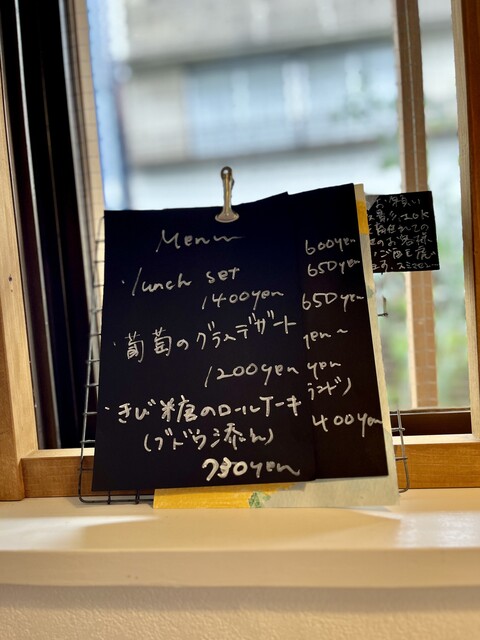 Menu
・lunch set
1400yen
・葡萄のグラスデザート
1200yen
・きび糖のロールケーキ
(ブドウ添え)
730yen
600yen
650yen
650yen
yen〜
yen
400yen
お願い